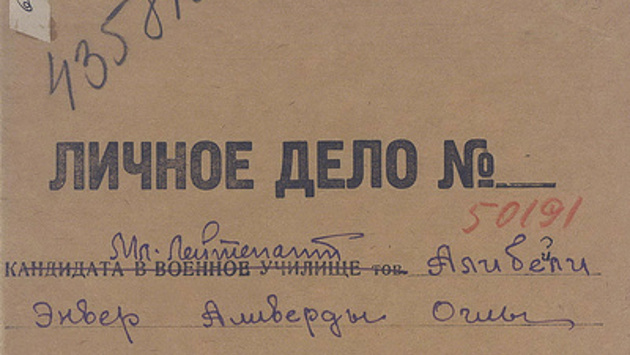 ЛИЧНОЕ ДЕЛО №
50191
Мл. Лейтенант
КАНДИДАТА В ВОЕННОЕ УЧИЛИЩЕ тов. Алибейли
Энвер Аливерды Оглы